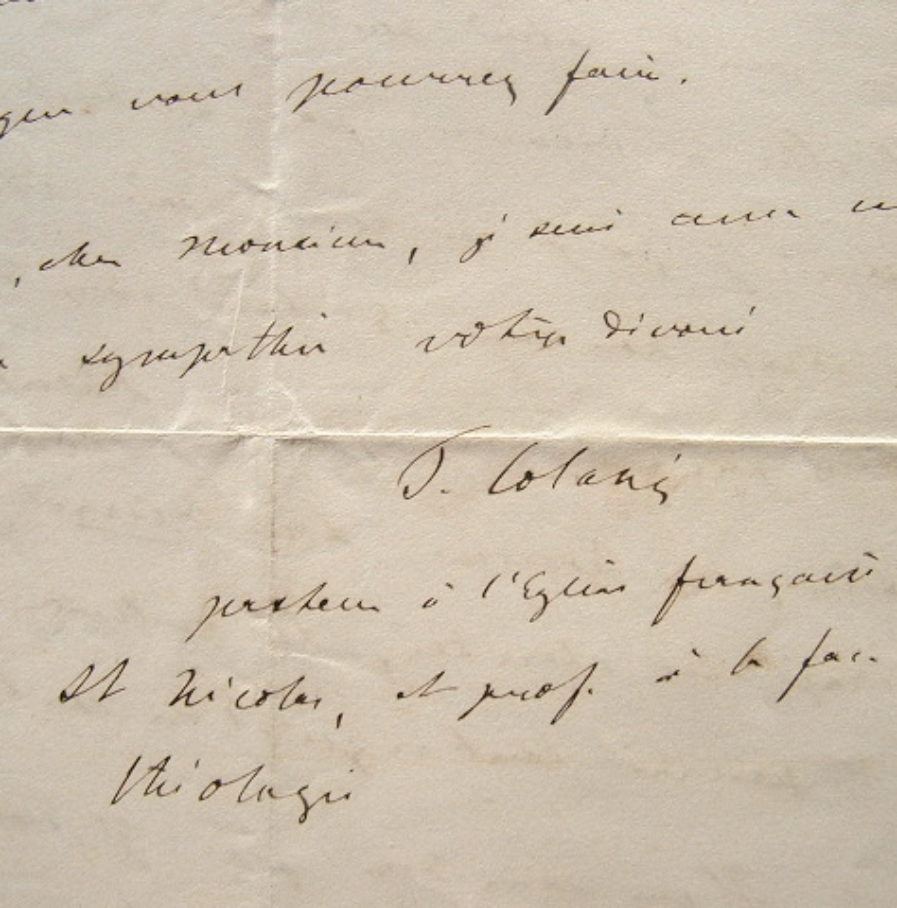 que vous pourrez faire.
, cher Monsieur, je suis avec
sympathie votre dévoué
T. Colani
pasteur à l'Eglise française
St Nicolas, et prof. à la fac.
théologie